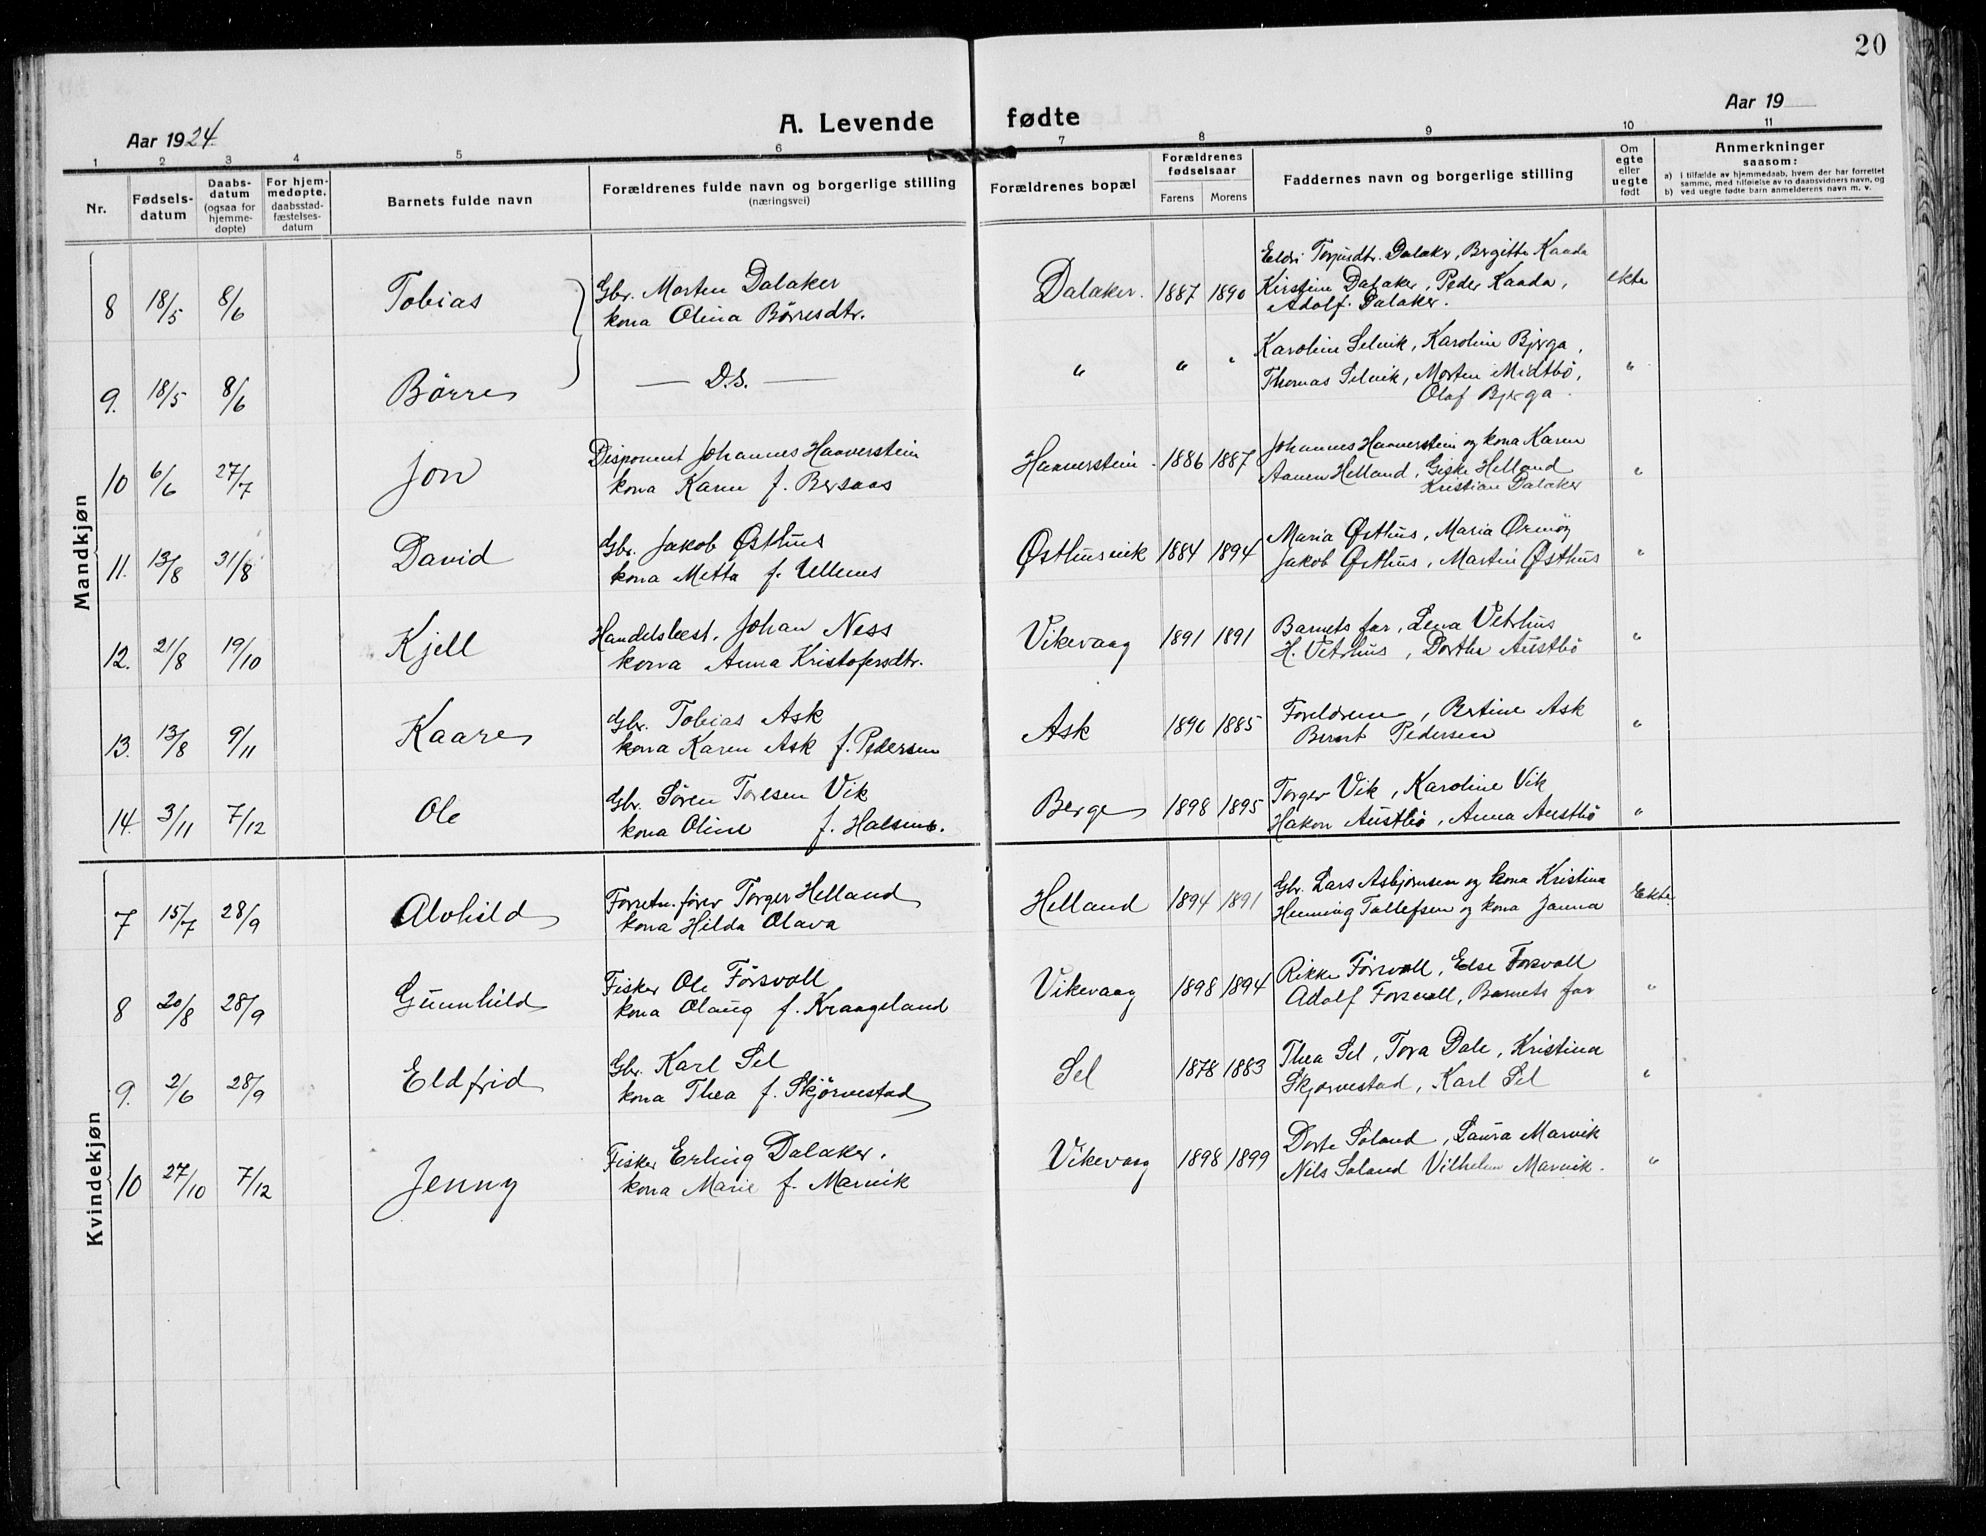 20
Aar 1924. A. Levende fødte Aar 19
1 2 3 4 5 6 7 8 9 10 11
Nr.
Fødsels-
datum
Daabs-
datum
(ogsaa for
hjemme-
døpte)
For hjem-
medøpte.
daabsstad-
fæstelses-
datum
Barnets fulde navn
Forældrenes fulde navn og borgerlige stilling
(næringsvei)
Forældrenes bopæl
Forældrenes
fødselsaar
Farens Morens
Faddernes navn og borgerlige stilling
Om
egte
eller
uegte
født
Anmerkninger
saasom:
a) i tilfælde av hjemmedaab, hvem der har forrettet
samme, med tilføielse av to daabsvidners navn, og
b) ved uegte fødte barn anmelderens navn m. v.
Mandkjøn
8 18/5 8/6 Tobias
Gbr. Morten Dalaker
kona Olina Børresdtr.
Dalaker. 1887 1890
Eldri Torjusdtr. Dalaker, Bergitte Kaada
Kirstine Dalaker, Peder Kaada,
Adolf Dalaker.
ekte
9. 18/5 8/6 Børre
— D.S. —
" " "
Karoline Selvik, Karoline Bjerga,
Thomas Selvik, Morten Midtbö,
Olaf Bjerga.
"
10 6/6 27/7 Jon
Disponent Johannes Haaverstein
kona Karen f. Bersaas
Haaverstein. 1886 1887
Johannes Haaverstein og kona Karen
Aanen Helland, Giske Helland
Kristian Dalaker
"
11. 13/8 31/8 David
Gbr. Jakob Østhus
kona Metta f. Ullenes
Østhusvik 1884 1894
Maria Østhus, Maria Ormöy
Jakob Østhus, Martin Østhus
"
12. 21/8 19/10 Kjell
Handelsbest. Johan Ness
kona Anna Kristofersdtr.
Vikevaag 1891 1891
Barnets far, Lena Vetrhus
H. Vetrhus, Dorthe Austbö
"
13. 13/8 9/11 Kaare
Gbr. Tobias Ask
kona Karen Ask f. Pedersen
Ask 1890 1885
Foreldrene, Bertine Ask
Bernt Pedersen
"
14. 3/11 7/12 Ole
Gbr. Sören Torlsen Vik
kona Oline f. Halsene.
Berge 1898 1895
Torger Vik, Karoline Vik
Hakon Austbö, Anna Austbö
"
Kvindekjøn
7 15/7 28/9 Alvhild
Forretn.fører Torger Helland
kona Hilda Olava
Helland 1894 1891
Gbr. Lars Asbjørnsen og kona Kristina
Henning Tollefsen og kona Janna
Ekte
8 20/8 28/9 Gunnhild
Fisker Ole Førsvoll
kona Olaug f. Kraageland
Vikevaag 1898 1894
Rikke Førsvoll, Else Forsvoll
Adolf Forsvoll, Barnets far
"
9. 2/6 28/9 Eldfrid
Gbr. Karl Sel
kona Thea f. Skjörvestad
Sel 1878 1883
Thea Sel, Tora Dale, Kristina
Skjorvestad, Karl Sel
"
10 27/10 7/12 Jenny
Fisker Erling Dalaker.
kona Marie f. Marvik
Vikevaag 1898 1899
Dorte Soland, Laura Marvik
Nils Soland Vilhelm Marvik.
"